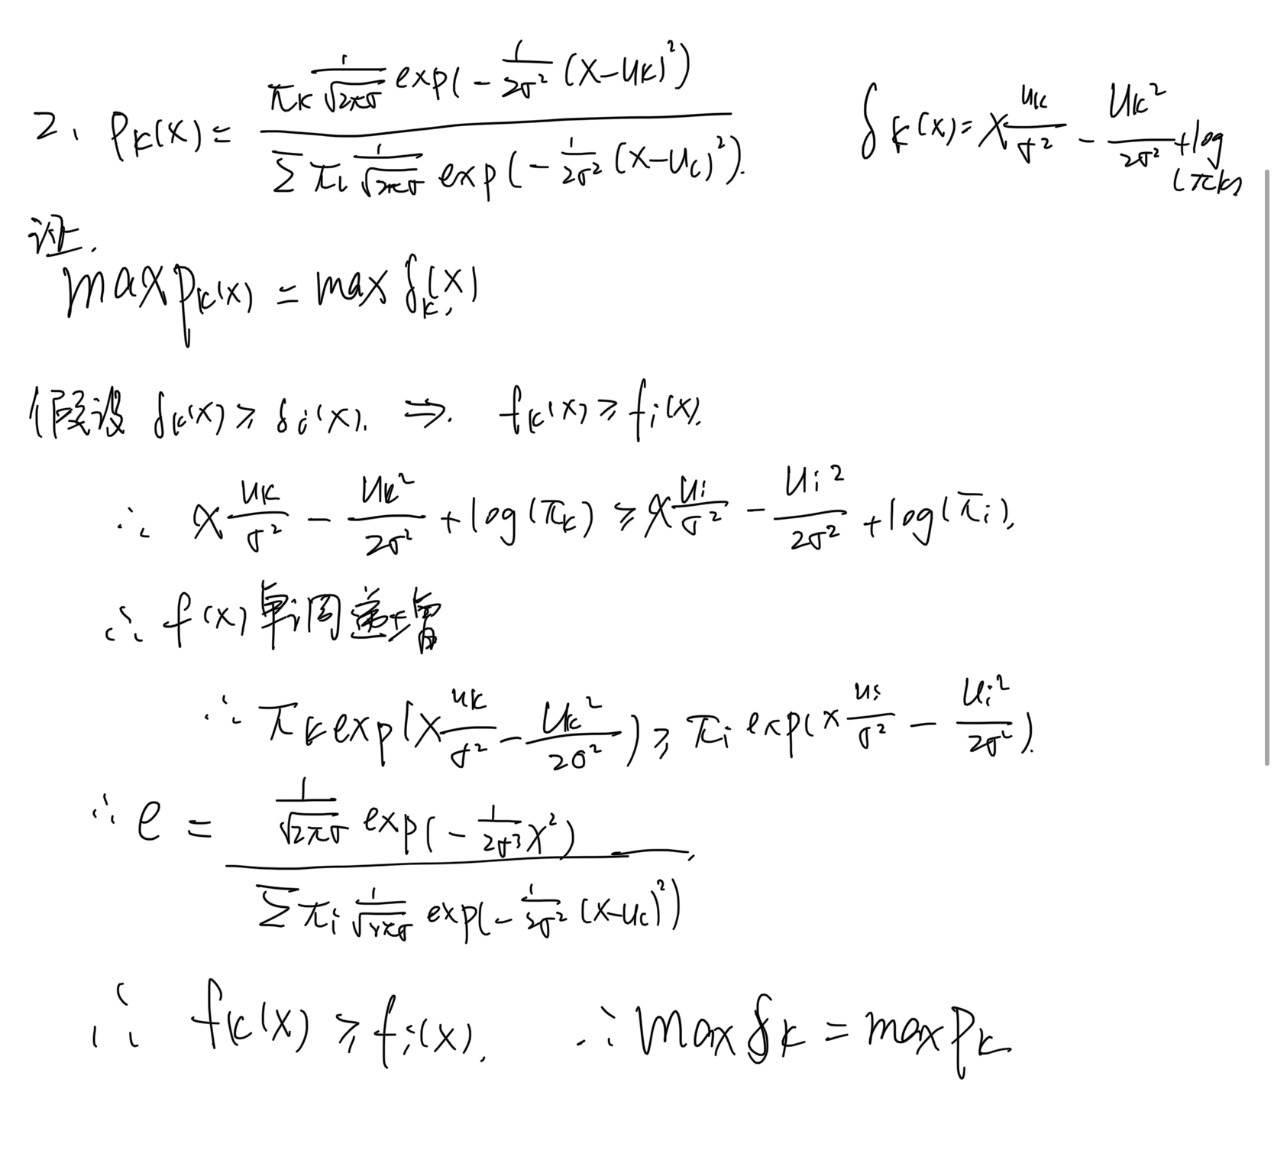 2. Pk(x) = πk 1/√2πσ exp(-1/2σ² (x-uk)²) / Σ πi 1/√2πσ exp(-1/2σ² (x-uc)²).
δk(x) = x uk/σ² - uk²/2σ² + log(πk)
证.
max pk(x) = max δk(x)
假设 δk(x) ≥ δi(x). ⇒ fk(x) ≥ fi(x).
∴ x uk/σ² - uk²/2σ² + log(πk) ≥ x ui/σ² - ui²/2σ² + log(πi).
∴ f(x) 单调递增
∵ πk exp(x uk/σ² - uk²/2σ²) ≥ πi exp(x ui/σ² - ui²/2σ²).
∵ e = 1/√2πσ exp(-1/2σ³ x²) / Σ πi 1/√2πσ exp(-1/2σ² (x-uc)²)
∴ fk(x) ≥ fi(x). ∴ max δk = max Pk